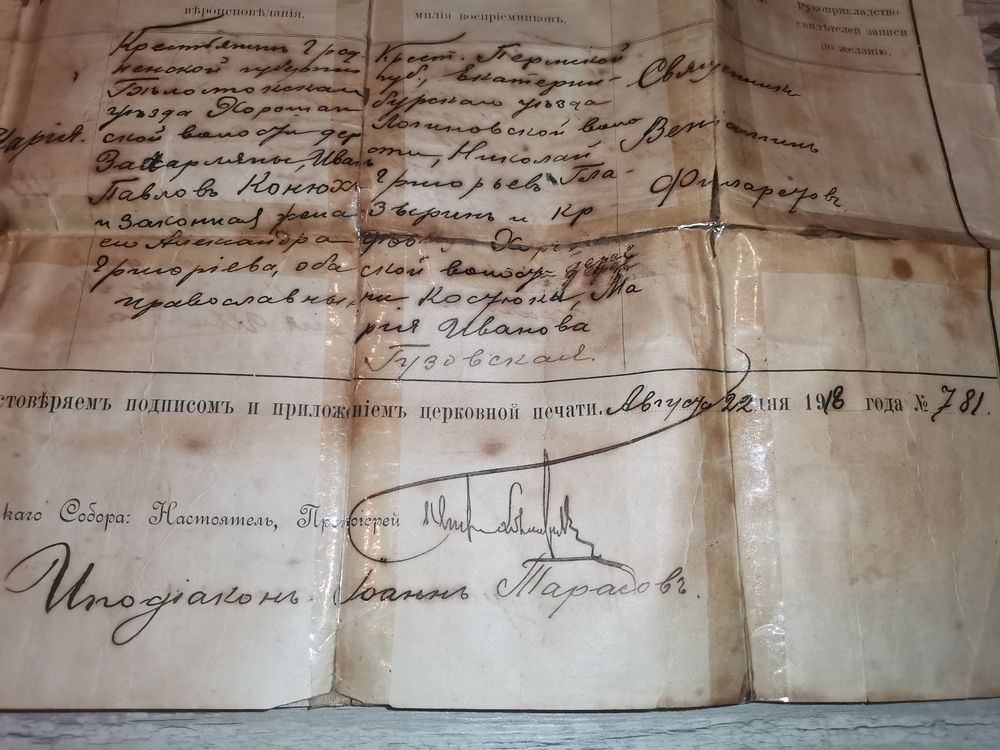 вѣроисповѣданія.
милія воспріемниковъ.
Рукоприкладство
свидѣтелей записи
по желанію.
Марія.
Крестьянинъ Град
ненской губерніи
Бѣлостокскаго
уѣзда Хорощан
ской волости дер
Захарляны, Иванъ
Павловъ Конюх,
и законная жена
его Александра
Григоріева, оба
православны
Крест. Пермской
губ., Екатерин-
бурскаго уѣзда
Логиновской воло
сти, Николай
Григорьевъ Гла-
Зыринъ и Кр
Хор
ской волости дерев
ни Костюки, Ма
рия Иванова
Гузовская.
Священникъ
Веніаминъ
Филаретовъ
стовѣряемъ подписомъ и приложеніемъ церковной печати. Августа 22 дня 1918 года № 781.
скаго Собора: Настоятель, Протоіерей
Иподіаконъ Іоаннъ Тарасовъ.